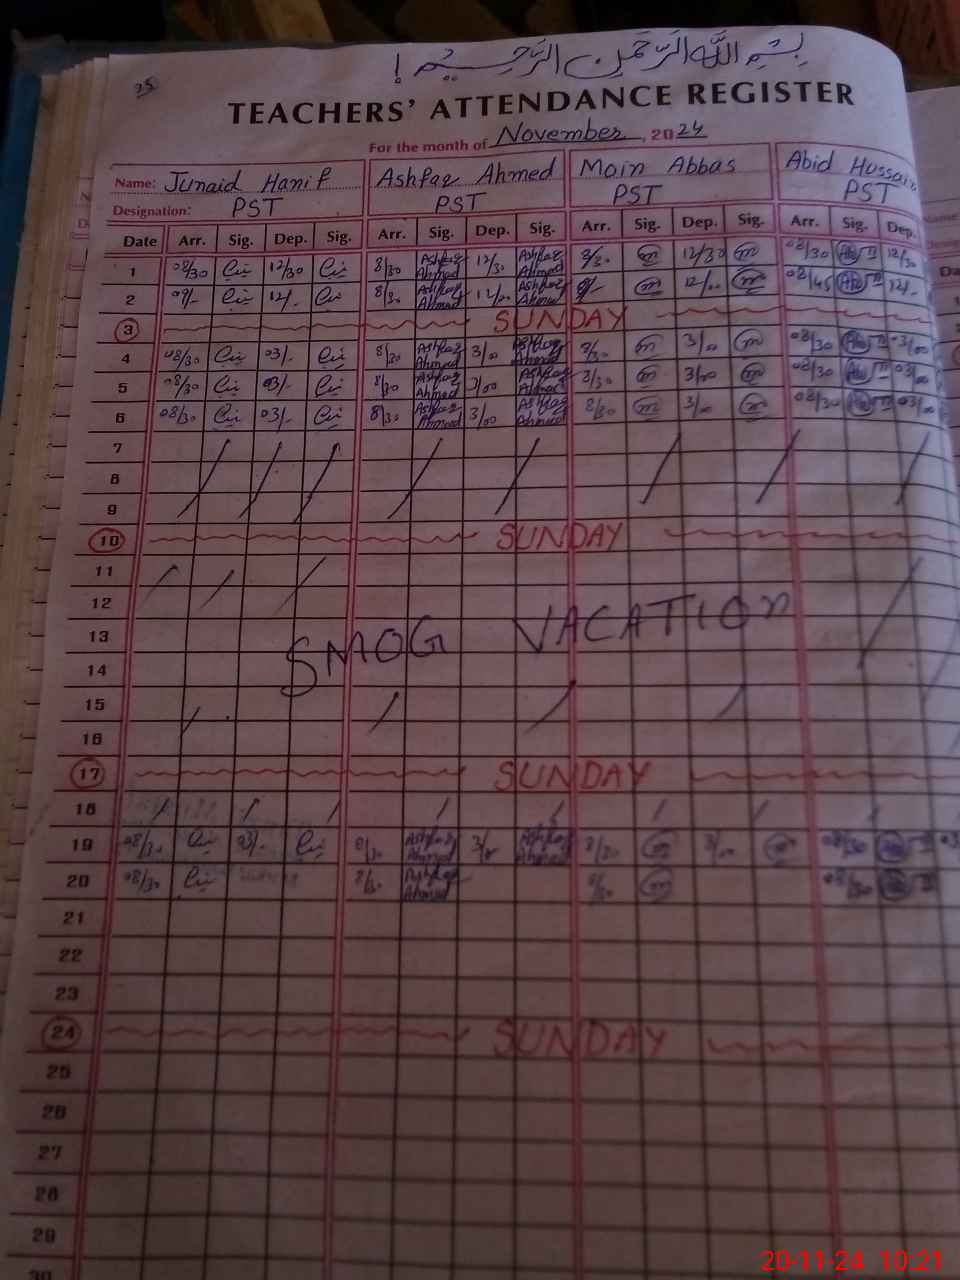 25
بِسْمِ اللّٰهِ الرَّحْمٰنِ الرَّحِيْمِ !
TEACHERS' ATTENDANCE REGISTER
For the month of November, 2024
Name: Junaid Hanif Ashfaq Ahmed Moin Abbas Abid Hussain
Designation: PST PST PST PST
Date Arr. Sig. Dep. Sig. Arr. Sig. Dep. Sig. Arr. Sig. Dep. Sig. Arr. Sig. Dep.
1 08/30 12/30 8/30 Ashfaq Ahmed 12/30 Ashfaq Ahmed 8/30 m 12/30 m 08/30 12/30
2 09/- 12/- 8/30 Ashfaq Ahmed 12/00 Ashfaq Ahmed m 12/00 m 08/45 12/-
3 SUNDAY
4 08/30 03/- 8/30 Ashfaq Ahmed 3/00 Ashfaq Ahmed 8/30 m 3/00 m 08/30 03/00
5 08/30 03/- 8/30 Ashfaq Ahmed 3/00 Ashfaq Ahmed 8/30 m 3/00 m 08/30 03/00
6 08/30 03/- 8/30 Ashfaq Ahmed 3/00 Ashfaq Ahmed 8/30 m 3/00 m 08/30 03/00
7
8
9
10 SUNDAY
11
12
13 SMOG VACATION
14
15
16
17 SUNDAY
18
19 08/30 03/- 8/30 Ashfaq Ahmed 3/00 Ashfaq Ahmed 8/30 m 3/00 m 08/30 03
20 08/30 8/30 Ashfaq Ahmed 8/30 m 08/30
21
22
23
24 SUNDAY
25
26
27
28
29
30
20-11-24 10:21